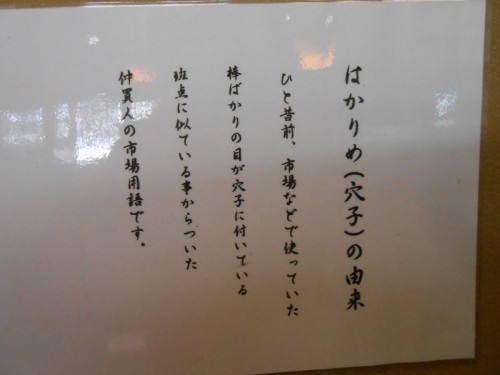 はかりめ(穴子)の由来
ひと昔前、市場などで使っていた
棒ばかりの目が穴子に付いている
斑点に似ている事からついた
仲買人の市場用語です。